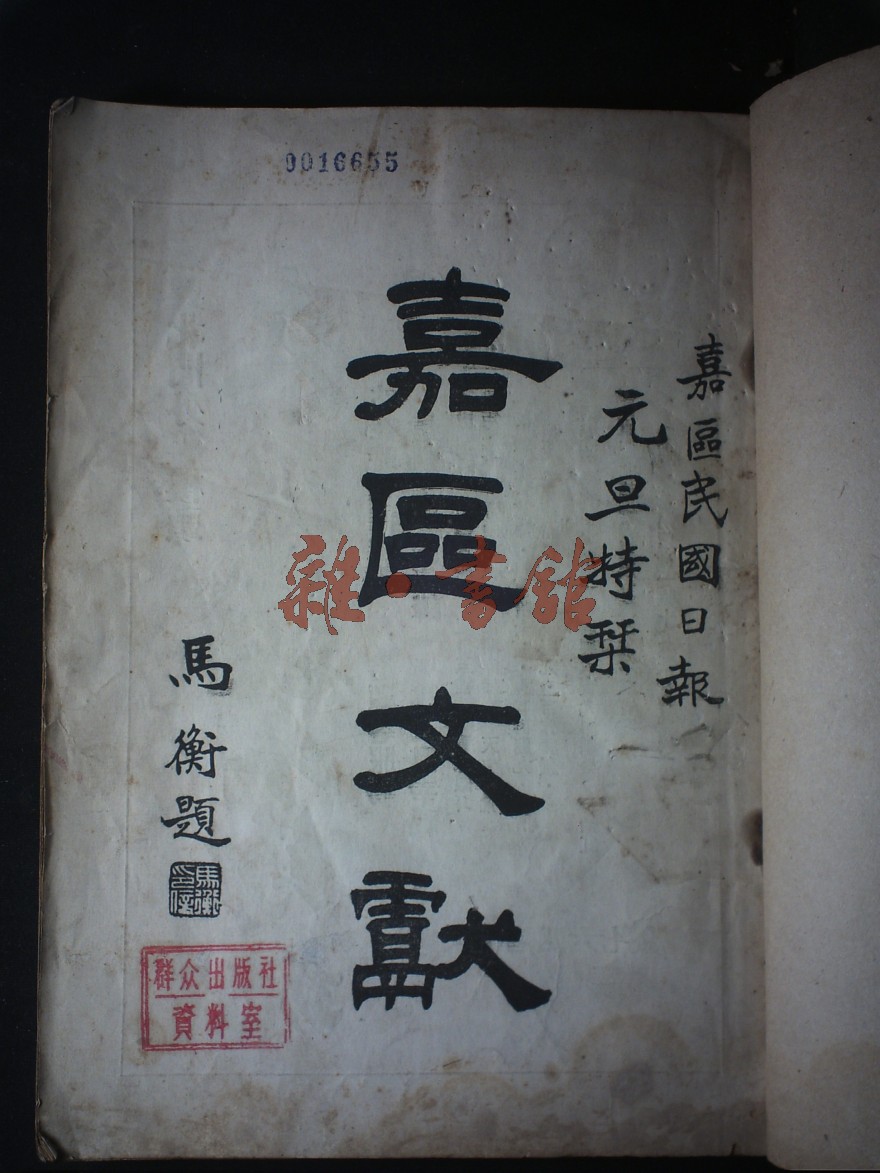 0016655
嘉區民國日報
元旦特栞
嘉區文獻
馬衡題
馬衡印信
群众出版社
資料室
雜·書館